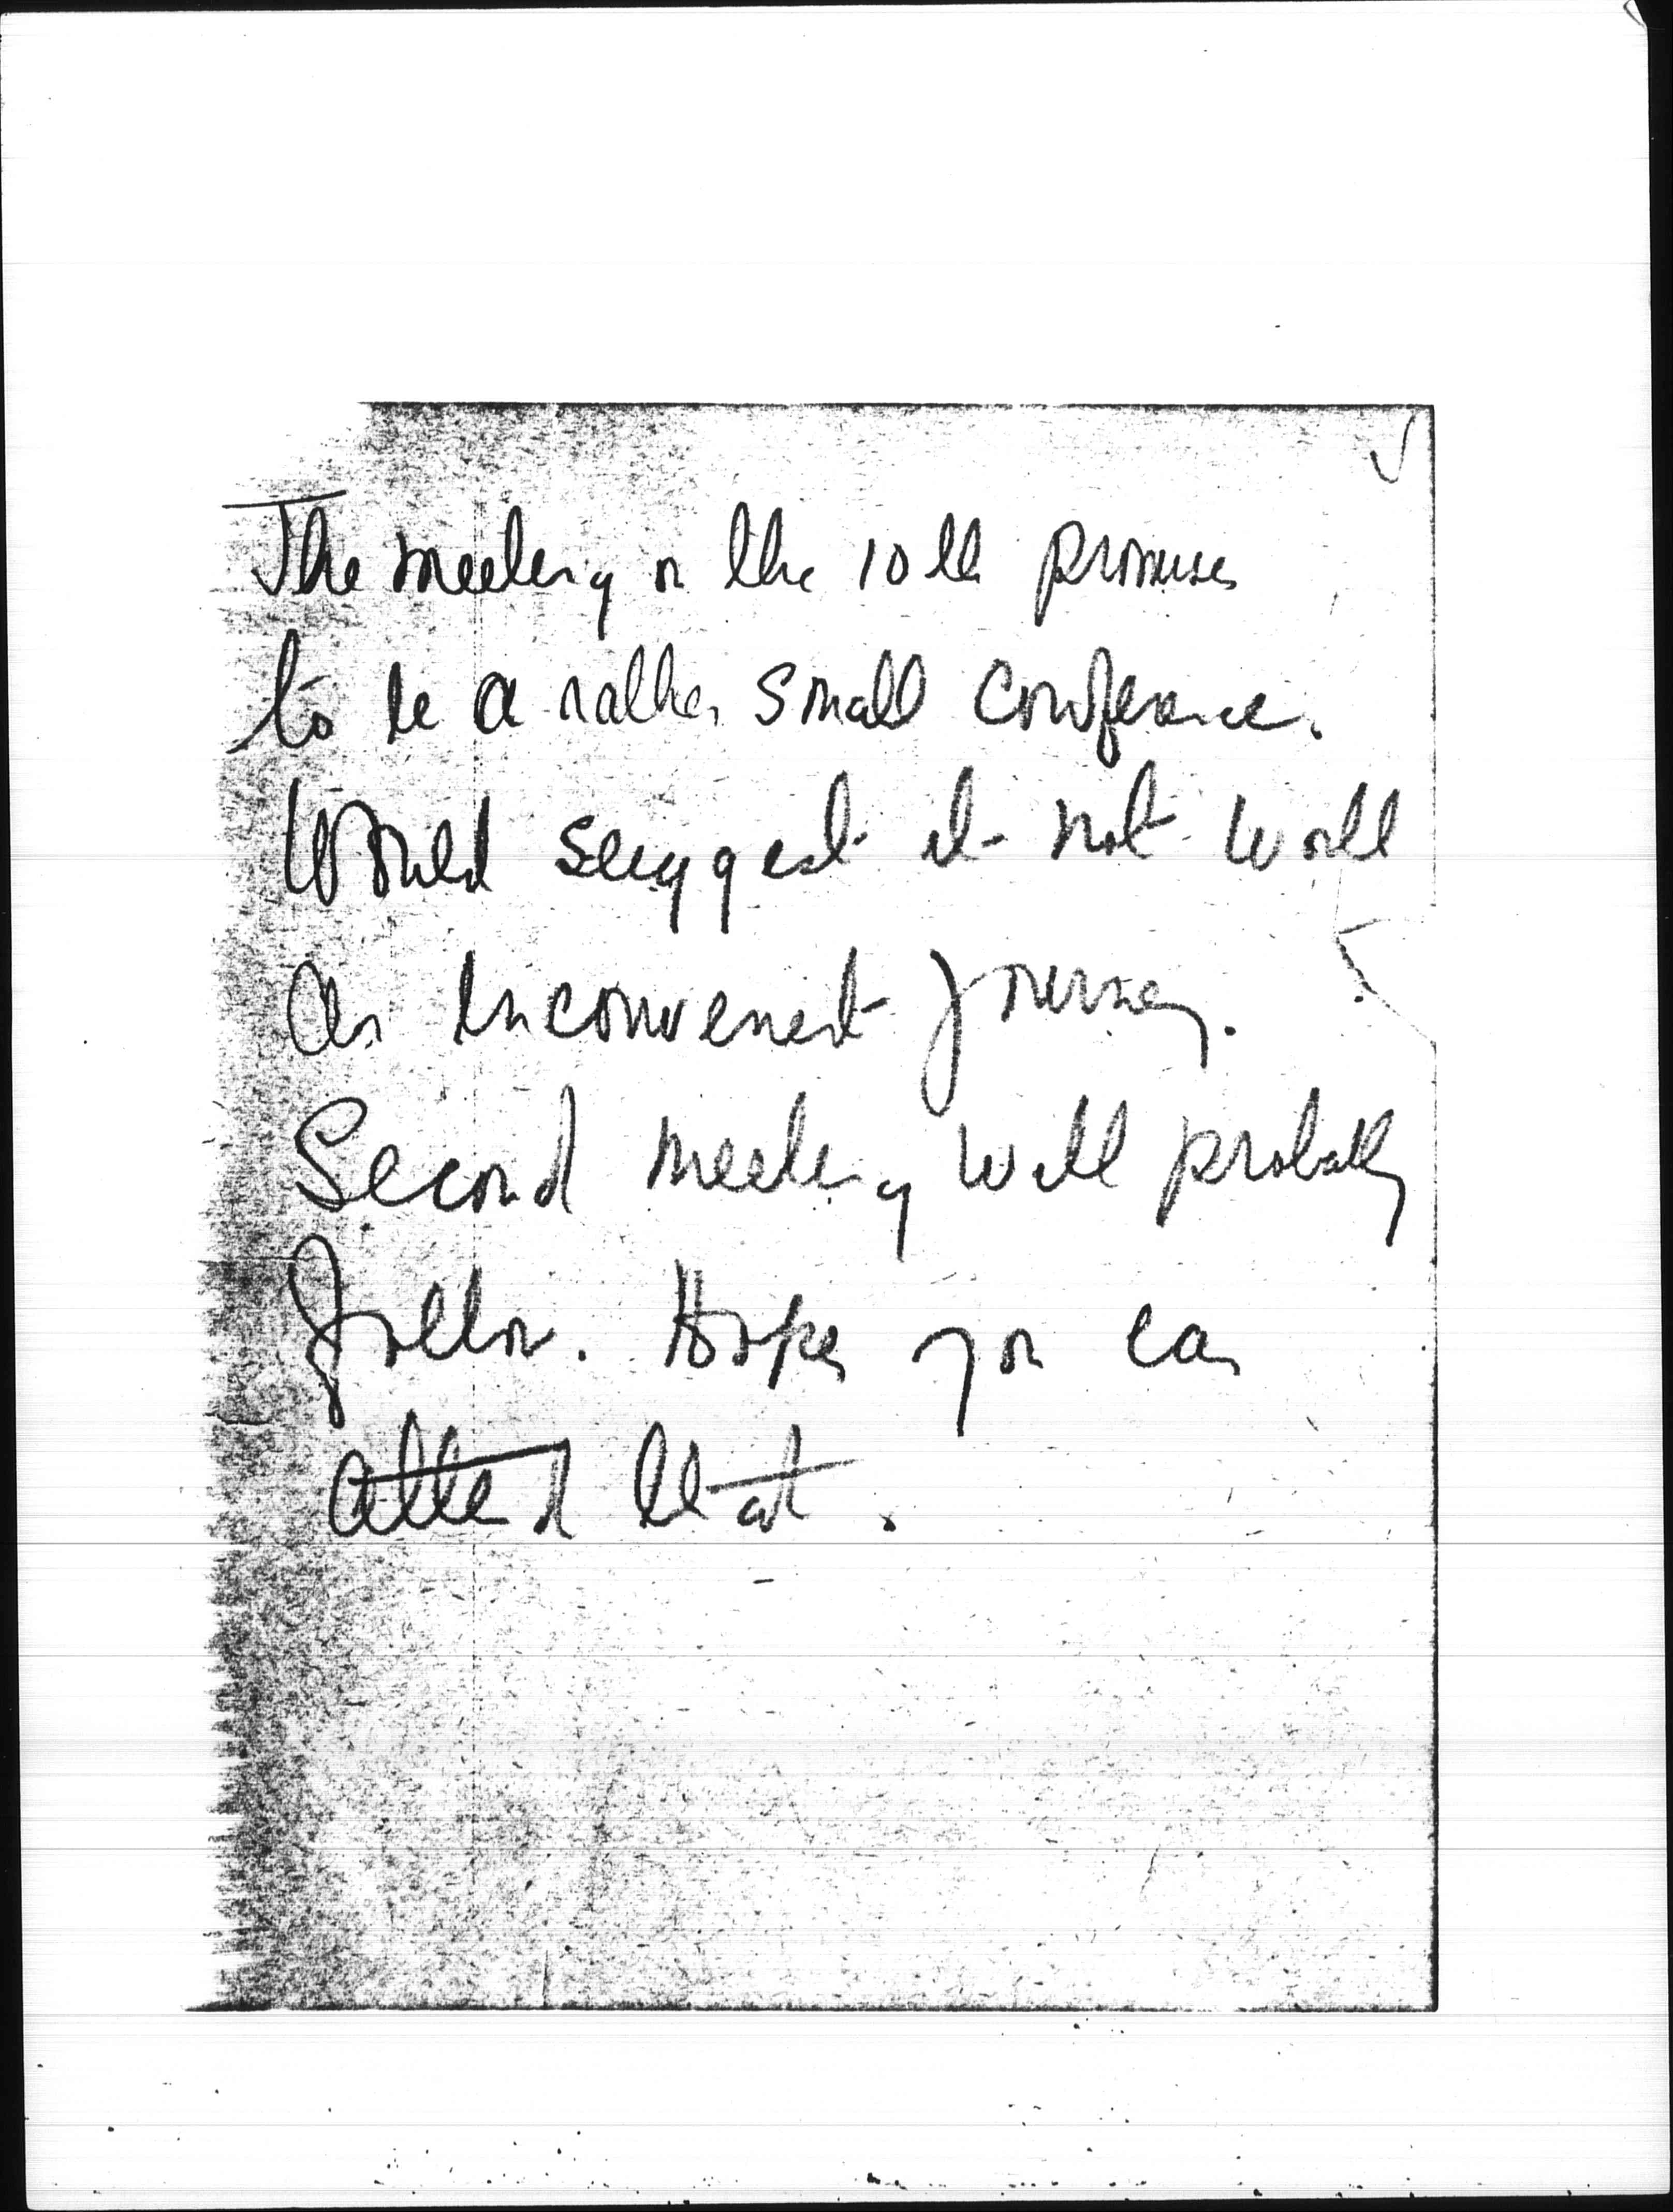 The meeting on the 10th promises
to be a rather small conference.
Would suggest it not worth
an inconvenient journey.
Second meeting will probably
follow. Hope you can
attend that.